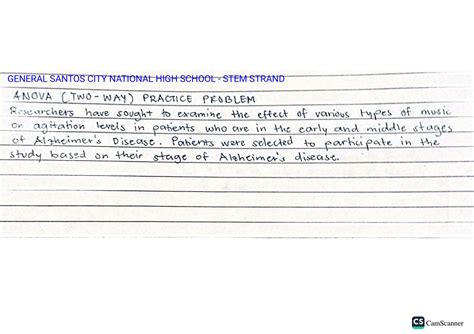 GENERAL SANTOS CITY NATIONAL HIGH SCHOOL - STEM STRAND
ANOVA (TWO-WAY) PRACTICE PROBLEM
Researchers have sought to examine the effect of various types of music
on agitation levels in patients who are in the early and middle stages
of Alzheimer's Disease. Patients were selected to participate in the
study based on their stage of Alzheimer's disease.
CS CamScanner